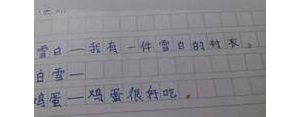 雪白—我有一件雪白的衬衣。
白雪—
鸡蛋—鸡蛋很好吃。